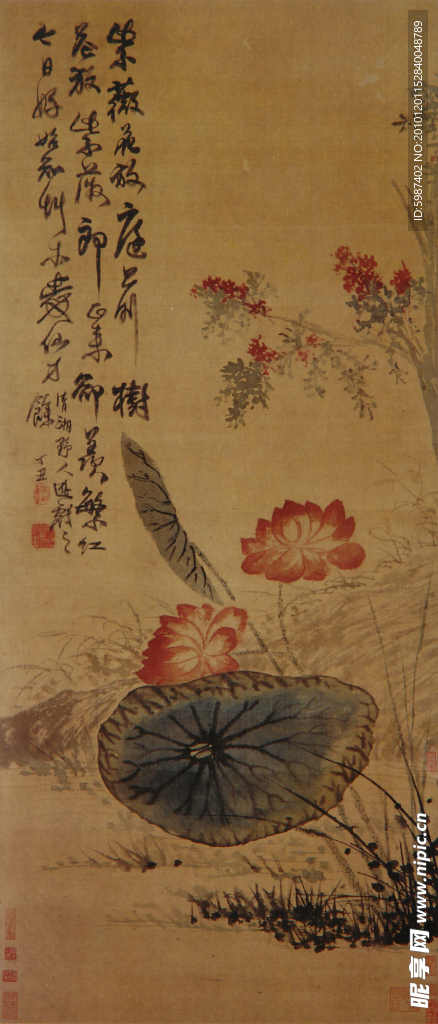 紫薇花放庭前樹
花放紫薇郎正來卻羨繁紅
七日好始知艸木發仙才
清湘野人遊戲之
餘 丁丑
ID:5987402 NO:20101201152840048789
昵享网 www.nipic.cn